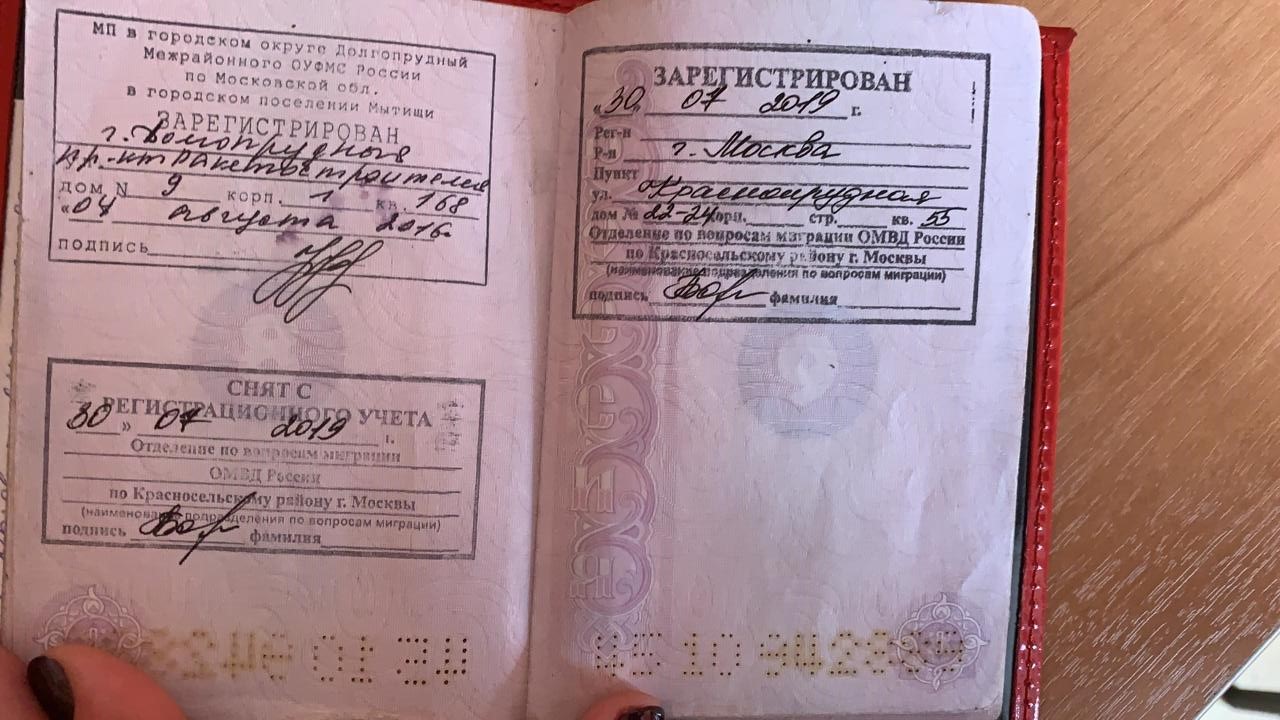 МП в городском округе Долгопрудный
Межрайонного ОУФМС России
по Московской обл.
в городском поселении Мытищи
ЗАРЕГИСТРИРОВАН
г. Долгопрудный
пр-кт Ракетостроителей
дом N 9 корп. 1 кв. 168
"04 августа 2016г.
подпись
СНЯТ С
РЕГИСТРАЦИОННОГО УЧЕТА
30 » 07 2019 г.
Отделение по вопросам миграции
ОМВД России
по Красносельскому району г. Москвы
(наименование подразделения по вопросам миграции)
подпись фамилия
ЗАРЕГИСТРИРОВАН
«30» 07 2019 г.
Рег-н
Р-н г. Москва
Пункт
ул. Краснопрудная
дом № 22-24 корп. стр. кв. 55
Отделение по вопросам миграции ОМВД России
по Красносельскому району г. Москвы
(наименование подразделения по вопросам миграции)
подпись фамилия
45 10